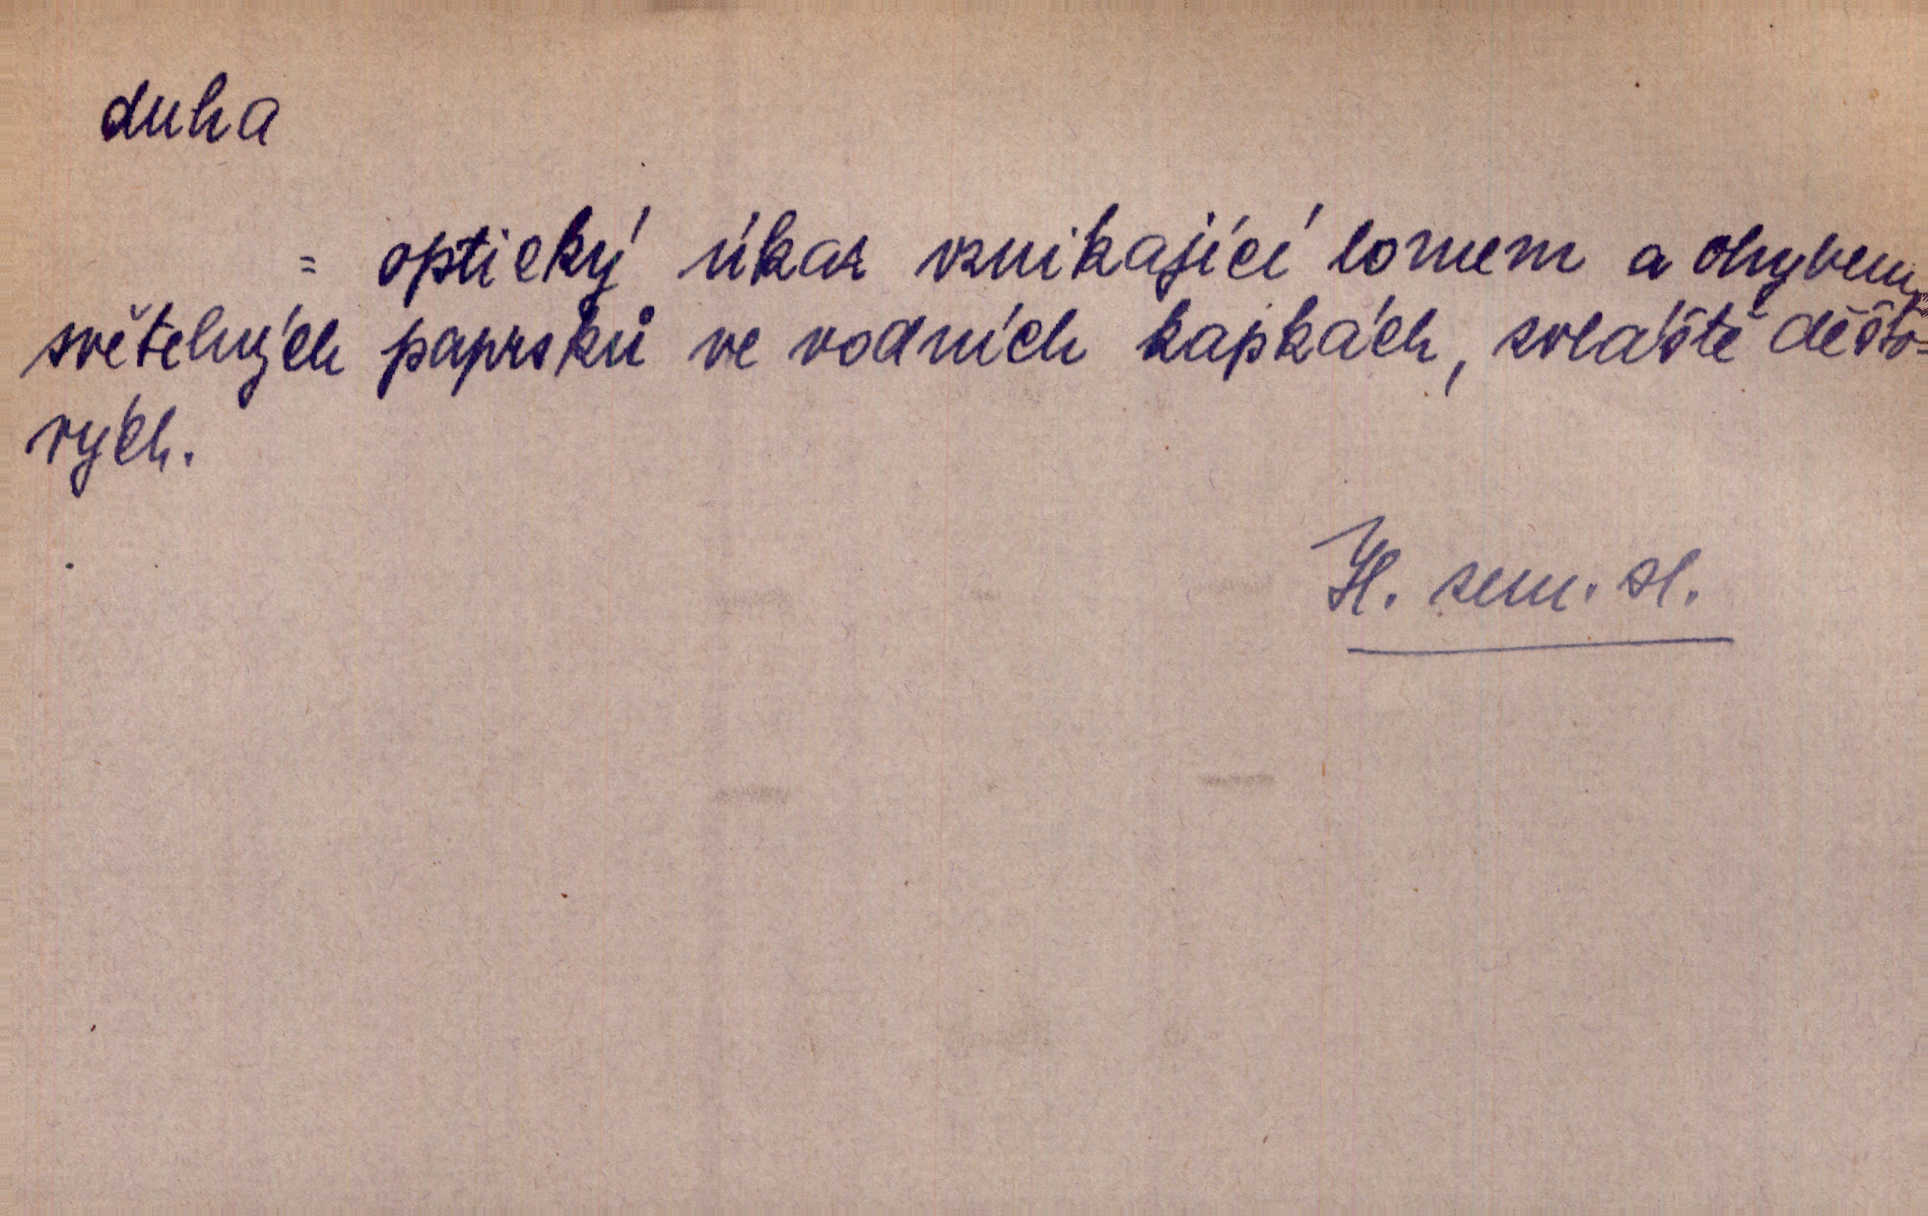 duha
= optický úkaz vznikající lomem a ohybem
světelných paprsků ve vodních kapkách, zvláště dešťo-
vých.
H. zem. sl.